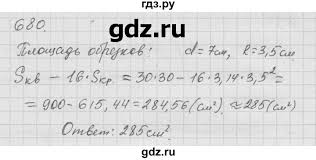 680.
gdz.ru
Площадь обрезков: d = 7см, R = 3,5см
Sкв - 16·Sкр = 30·30 - 16·3,14·3,5² =
= 900 - 615,44 = 284,56 (см²) ≈ 285 (см²)
Ответ: 285 см².
gdz.ru